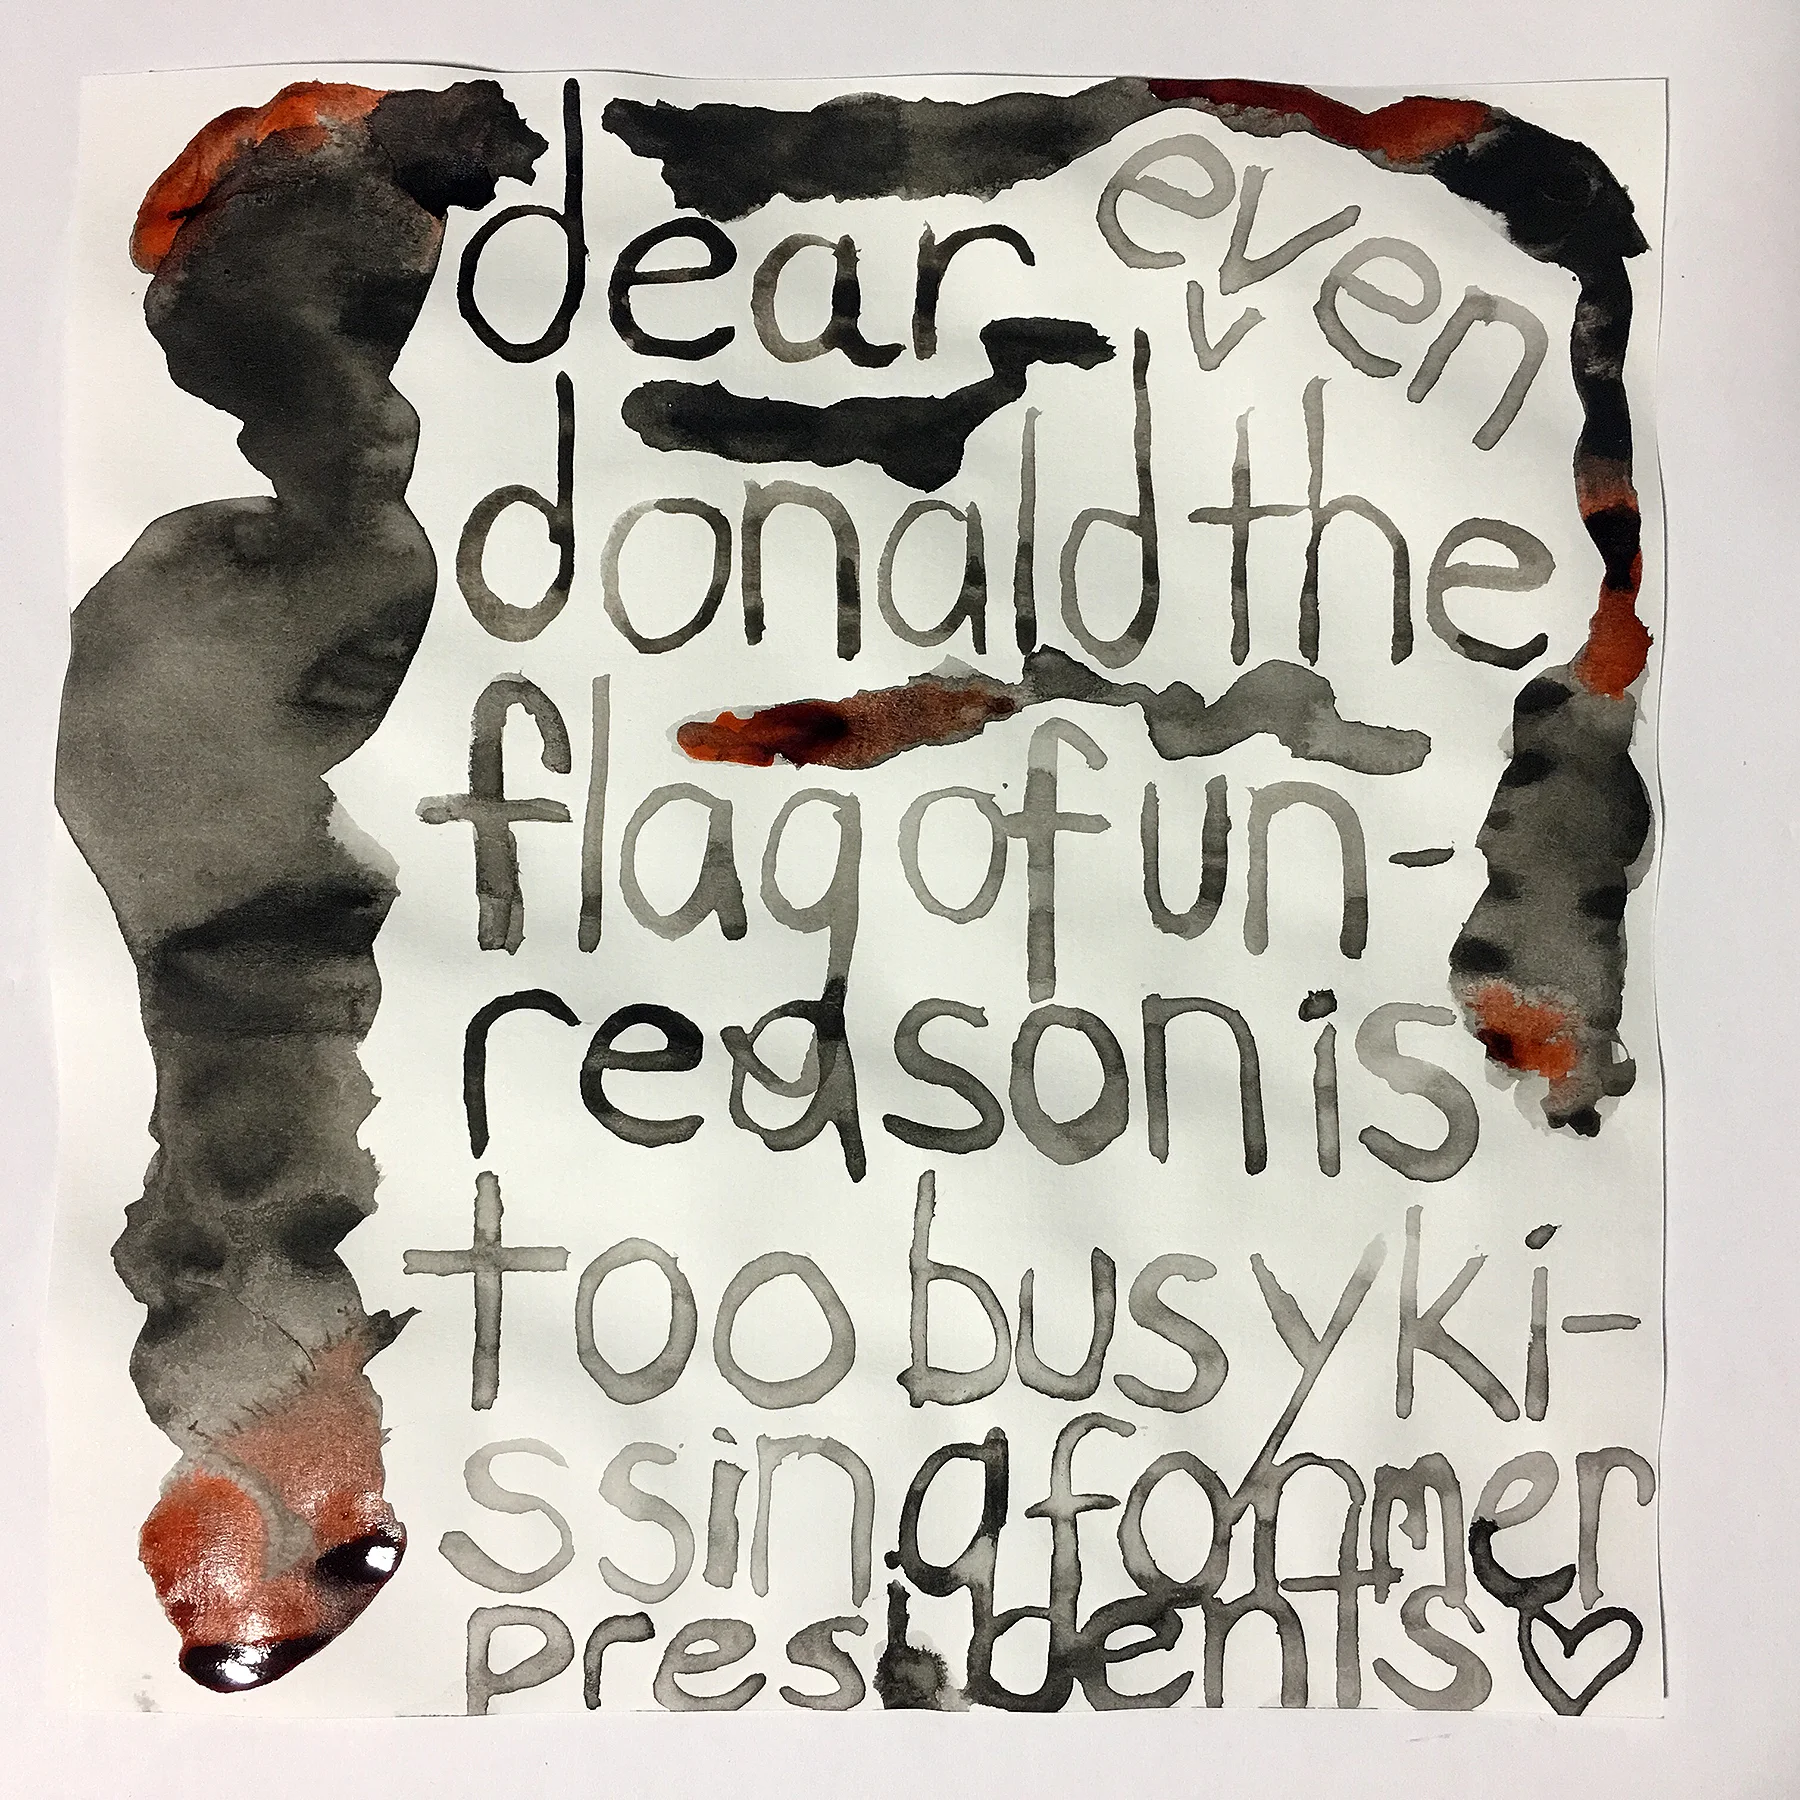 dear even
donald the
flag of un-
reason is
too busy ki-
ssing former
presidents